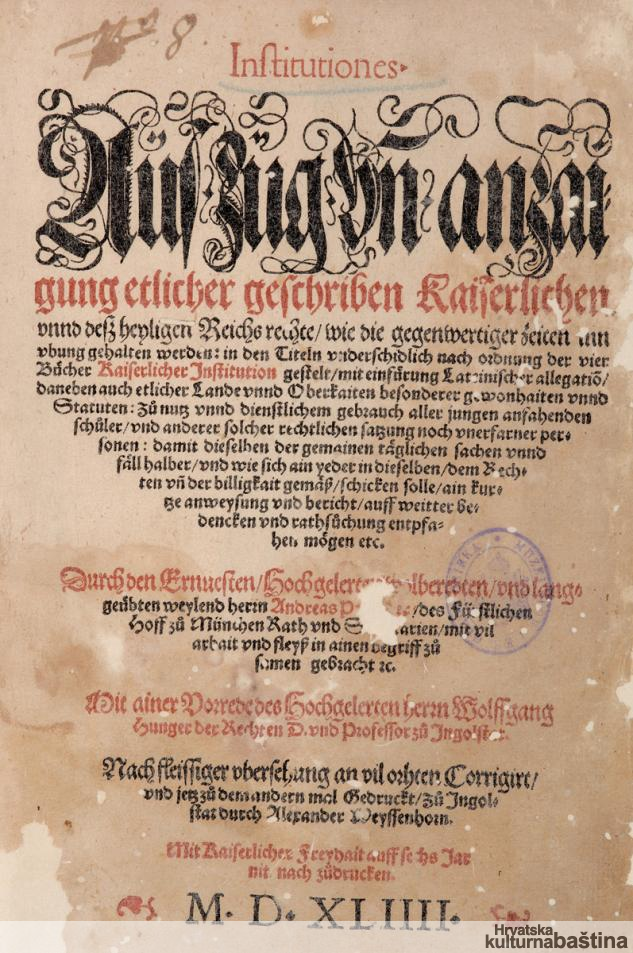 No 8
Institutiones.
Auszug vn anzai-
gung etlicher geschriben Kaiserlichen
vnnd desz heyligen Reichs rechte/ wie die gegenwertiger zeiten inn
vbung gehalten werden: in den Titeln vnderschidlich nach ordnung der vier
Bücher Kaiserlicher Institution gestelt/ mit einfürung Lateinischer allegatiō/
daneben auch etlicher Lande vnnd Oberkaiten besonderer gewonhaiten vnnd
Statuten: Zů nutz vnnd dienstlichem gebrauch aller jungen anfahenden
schüler/ vnd anderer solcher rechtlichen satzung noch vnerfarner per-
sonen: damit dieselben der gemainen täglichen sachen vnnd
fäll halber/ vnd wie sich ain yeder in dieselben/ dem Rech-
ten vñ der billigkait gemäß/ schicken solle/ ain kur-
tze anweysung vnd bericht/ auff weitter be-
dencken vnd rathsůchung entpfa-
hen mögen etc.
Durch den Ernuesten/ Hochgelerten wolberedten/ vnd lang-
geübten weylend herrn Andreas /des Fürstlichen
Hoff zů München Rath vnd /mit vil
arbait vnd fleyß in ainen begriff zů
samen gebracht ꝛc.
Mit ainer Vorrede des Hochgelerten herrn Wolffgang
Hunger der Rechten D. vnd Professor zů Ingolstat.
Nach fleissiger vbersehung an vil orhten Corrigirt/
vnd jetz zů dem andern mal Gedruckt/ Zů Ingol-
stat durch Alexander Weyssenhorn.
Mit Kaiserlicher Freyhait auff sechs Jar
nit nach zůdrucken.
M. D. XLIIII.
Hrvatska
kulturnabaština